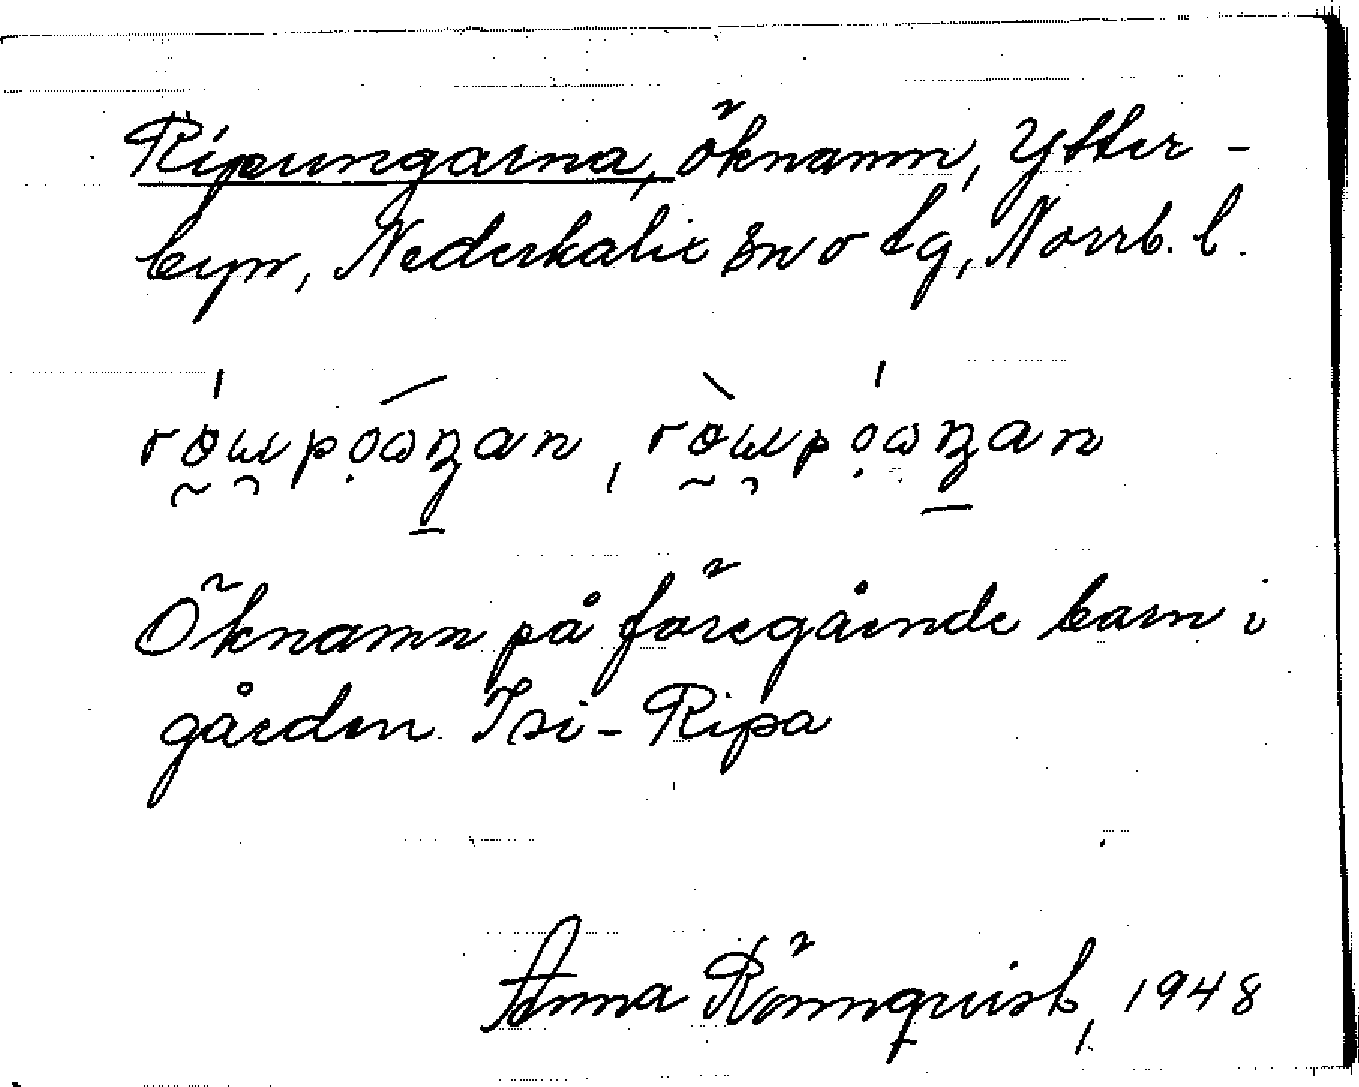 Ripungarna, öknamn, Ytter-
byn, Nederkalix sn o tg, Norrb. l.
Öknamn på föregående barn i
gården Isi-Ripa
Anna Rönnquist, 1948